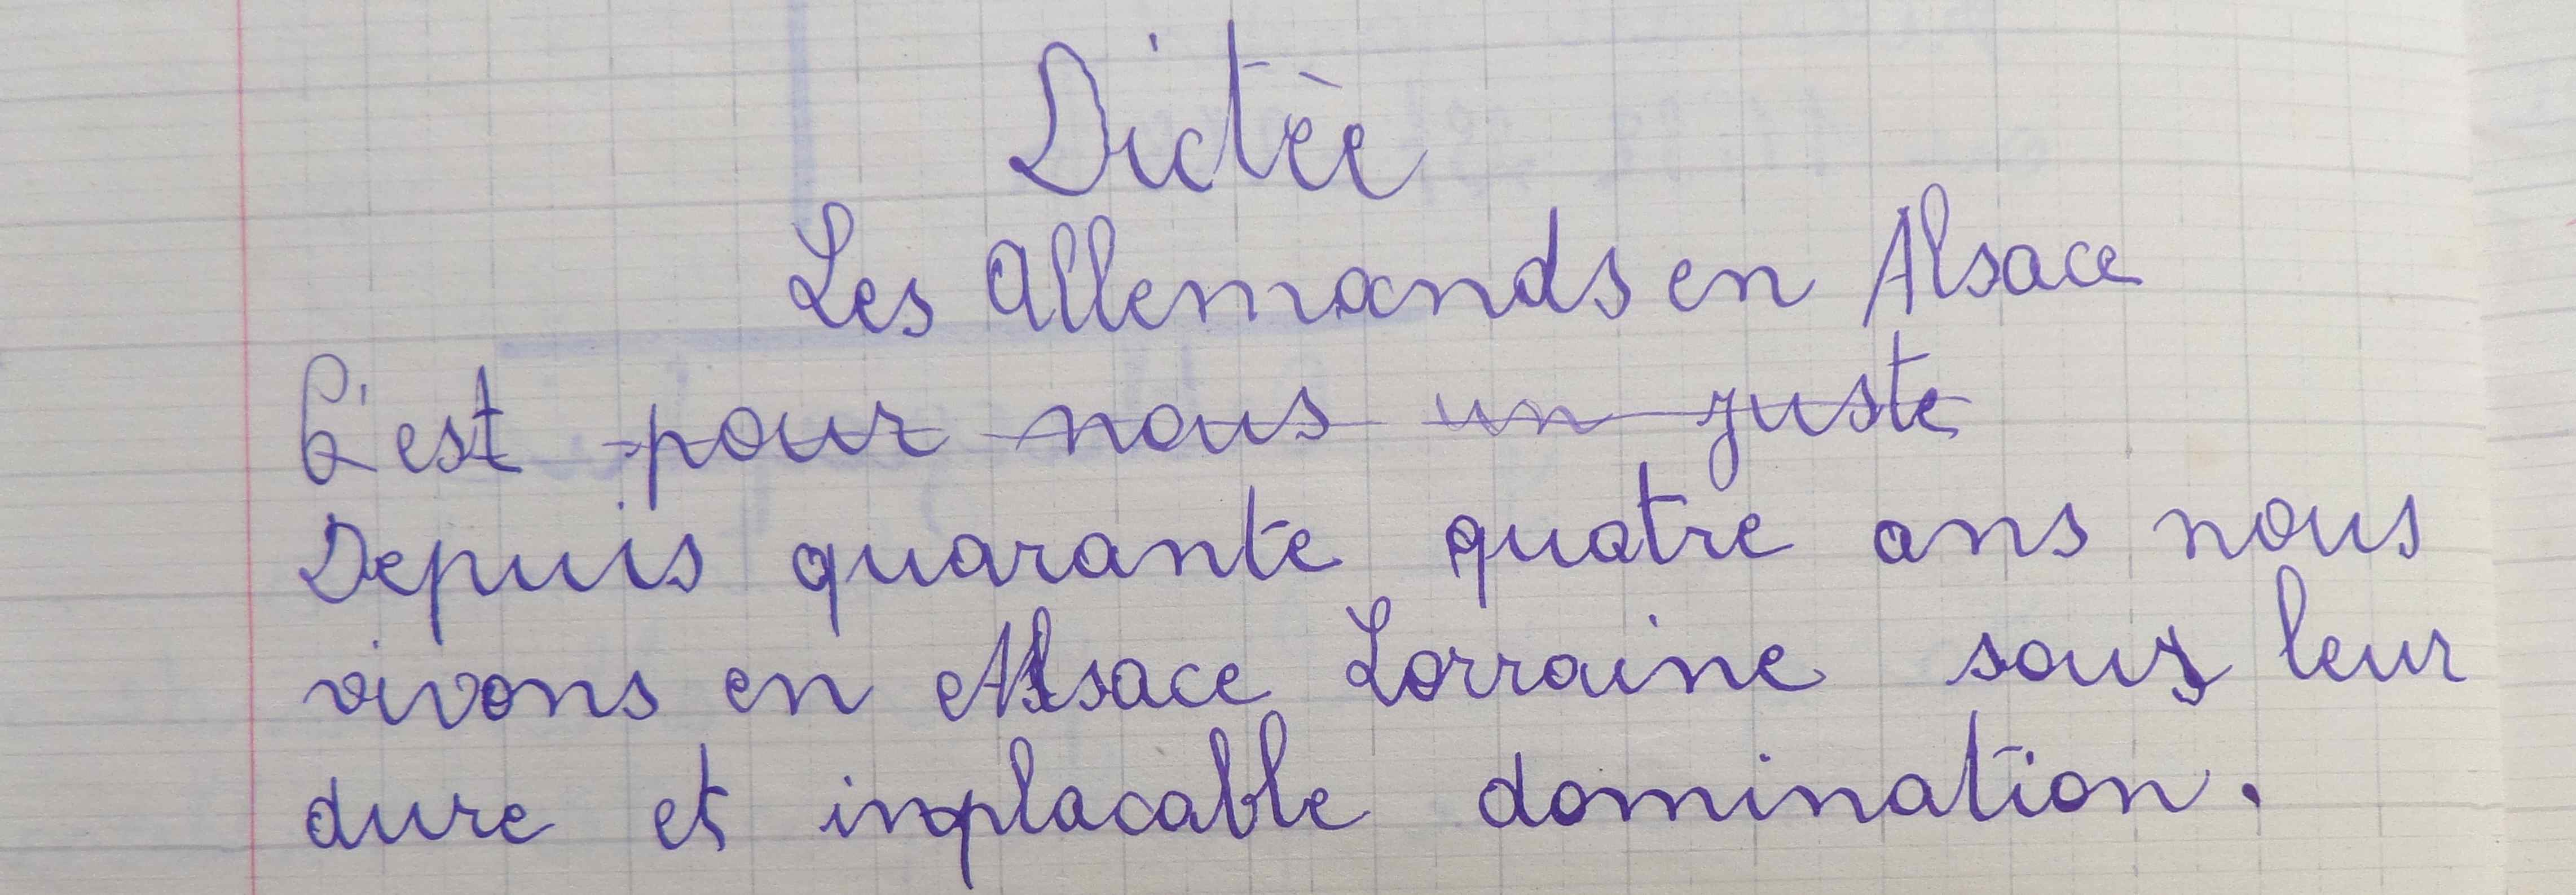 Dictèe
Les Allemands en Alsace
C'est pour nous un juste
Depuis quarante quatre ans nous
vivons en Alsace Lorraine sous leur
dure et implacable domination.